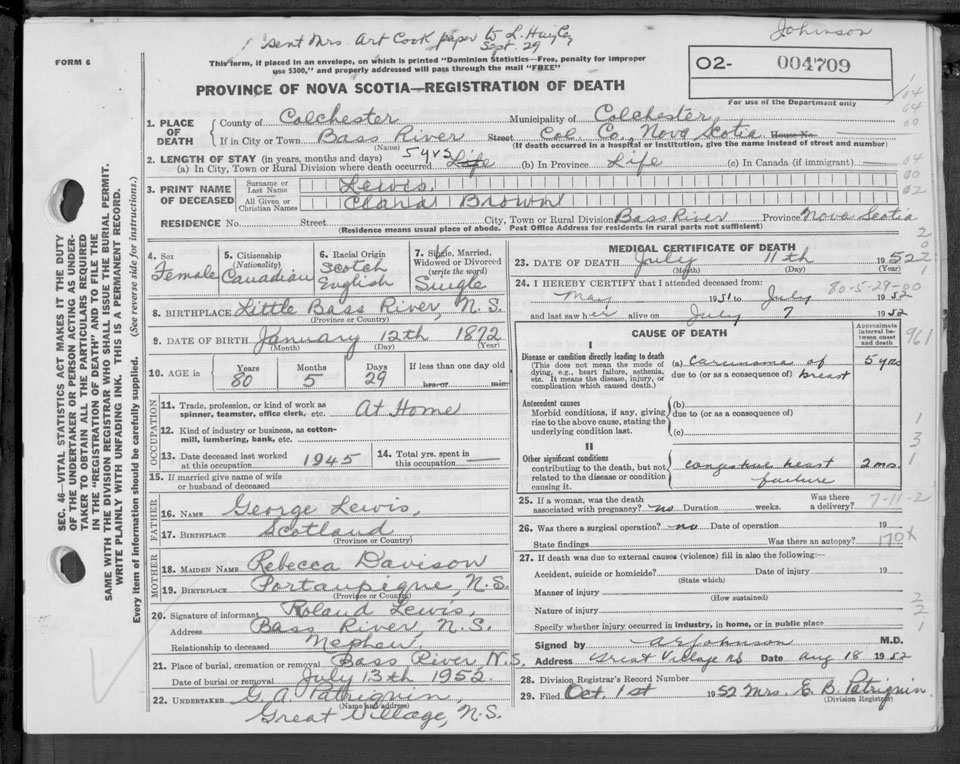 Sent Mrs. Art Cook paper to L.
Sept. 29
Johnson
FORM 6
This form, if placed in an envelope, on which is printed "Dominion Statistics—Free, penalty for improper
use $300," and properly addressed will pass through the mail "FREE"
O2- 004709
For use of the Department only
PROVINCE OF NOVA SCOTIA—REGISTRATION OF DEATH
1. PLACE OF DEATH
County of Colchester Municipality of Colchester,
If in City or Town Bass River Street Col. Co., Nova Scotia House No.
(Name) (If death occurred in a hospital or institution, give the name instead of street and number)
2. LENGTH OF STAY (in years, months and days)
(a) In City, Town or Rural Division where death occurred 5 yrs Life (b) In Province Life (c) In Canada (if immigrant) —
3. PRINT NAME OF DECEASED
Surname or Last Name Lewis.
All Given or Christian Names Brown
RESIDENCE No. Street City, Town or Rural Division Bass River Province Nova Scotia
(Residence means usual place of abode. Post Office Address for residents in rural parts not sufficient)
4. Sex Female
5. Citizenship (Nationality) Canadian
6. Racial Origin Scotch English
7. Single, Married, Widowed or Divorced (write the word) Single
8. BIRTHPLACE Little Bass River, N.S.
(Province or Country)
9. DATE OF BIRTH January 12th 1872
(Month) (Day) (Year)
10. AGE in Years 80 Months 5 Days 29 If less than one day old hrs. or min.
OCCUPATION
11. Trade, profession, or kind of work as spinner, teamster, office clerk, etc. At Home
12. Kind of industry or business, as cotton-mill, lumbering, bank, etc.
13. Date deceased last worked at this occupation 1945
14. Total yrs. spent in this occupation —
15. If married give name of wife or husband of deceased
FATHER
16. NAME George Lewis,
17. BIRTHPLACE Scotland
(Province or Country)
MOTHER
18. MAIDEN NAME Rebecca Davison
19. BIRTHPLACE Portaupique, N.S.
(Province or Country)
20. Signature of informant Roland Lewis,
Address Bass River, N.S.
Relationship to deceased Nephew,
21. Place of burial, cremation or removal Bass River, N.S.
Date of burial or removal July 13th 1952.
22. UNDERTAKER G. A. Patriquin,
(Name and address)
Great Village, N.S.
MEDICAL CERTIFICATE OF DEATH
23. DATE OF DEATH July 11th 1952
(Month) (Day) (Year)
80-5-29-00
24. I HEREBY CERTIFY that I attended deceased from:
May 1951 to July 1952
and last saw her alive on July 7 1952
CAUSE OF DEATH
Approximate interval between onset and death
I
Disease or condition directly leading to death
(This does not mean the mode of dying, e.g., heart failure, asthenia, etc. It means the disease, injury, or complication which caused death.)
(a) Carcinoma of
due to (or as a consequence of) breast
Antecedent causes
Morbid conditions, if any, giving rise to the above cause, stating the underlying condition last.
(b)
due to (or as a consequence of)
(c)
II
Other significant conditions
contributing to the death, but not related to the disease or condition causing it.
Congestive heart failure 2 mos.
25. If a woman, was the death associated with pregnancy? no Duration weeks. Was there a delivery?
7-11-2
26. Was there surgical operation? no Date of operation 19
State findings Was there an autopsy?
170X
27. If death was due to external causes (violence) fill in also the following:—
Accident, suicide or homicide? Date of injury 19
(State which)
Manner of injury
(How sustained)
Nature of injury
Specify whether injury occurred in industry, in home, or in public place
Signed by A R Johnson M.D.
Address Great Village NS Date Aug 18 1952
28. Division Registrar's Record Number
29. Filed Oct. 1st 1952 Mrs. E. B. Patriquin.
(Division Registrar)
SEC. 46—VITAL STATISTICS ACT MAKES IT THE DUTY
OF THE UNDERTAKER OR PERSON ACTING AS UNDER-
TAKER TO OBTAIN ALL THE PARTICULARS REQUIRED
IN THE "REGISTRATION OF DEATH" AND TO FILE THE
SAME WITH THE DIVISION REGISTRAR WHO SHALL ISSUE THE BURIAL PERMIT.
WRITE PLAINLY WITH UNFADING INK. THIS IS A PERMANENT RECORD.
Every item of information should be carefully supplied. (See reverse side for instructions.)